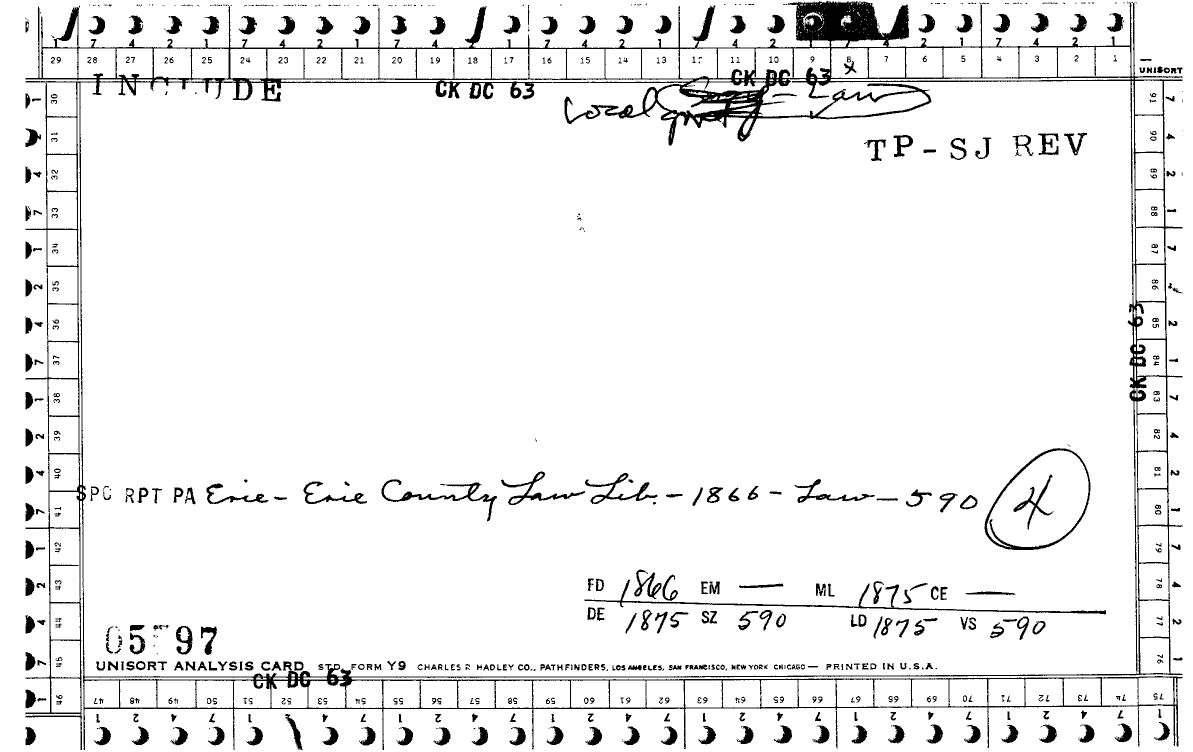 1 7 4 2 1 7 4 2 1 7 4 2 1 7 4 2 1 7 4 2 1 7 4 2 1
29 28 27 26 25 24 23 22 21 20 19 18 17 16 15 14 13 12 11 10 9 8 7 6 5 4 3 2 1
UNISORT
INCLUDE
CK DC 63
CK DC 63
Local govt Law
TP-SJ REV
CK DC 63
SPC RPT PA Erie - Erie County Law Lib. - 1866 - Law - 590 4
FD 1866 EM — ML 1875 CE —
DE 1875 SZ 590 LD 1875 VS 590
97
UNISORT ANALYSIS CARD STD. FORM Y9 CHARLES R HADLEY CO., PATHFINDERS, LOS ANGELES, SAN FRANCISCO, NEW YORK CHICAGO — PRINTED IN U.S.A.
CK DC 63
47 48 49 50 51 52 53 54 55 56 57 58 59 60 61 62 63 64 65 66 67 68 69 70 71 72 73 74 75